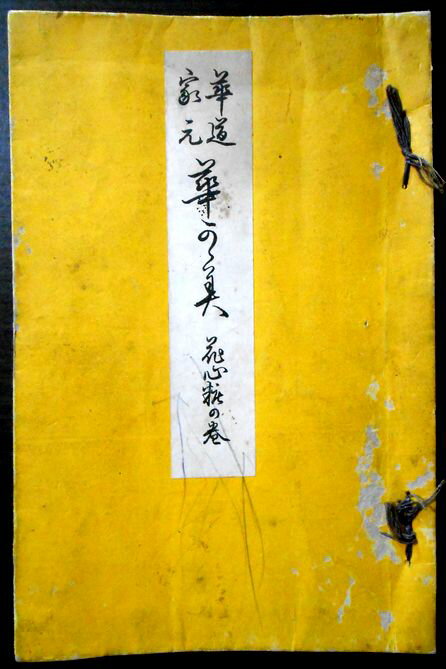 華道
家元
華かゝ美
花心粧の巻